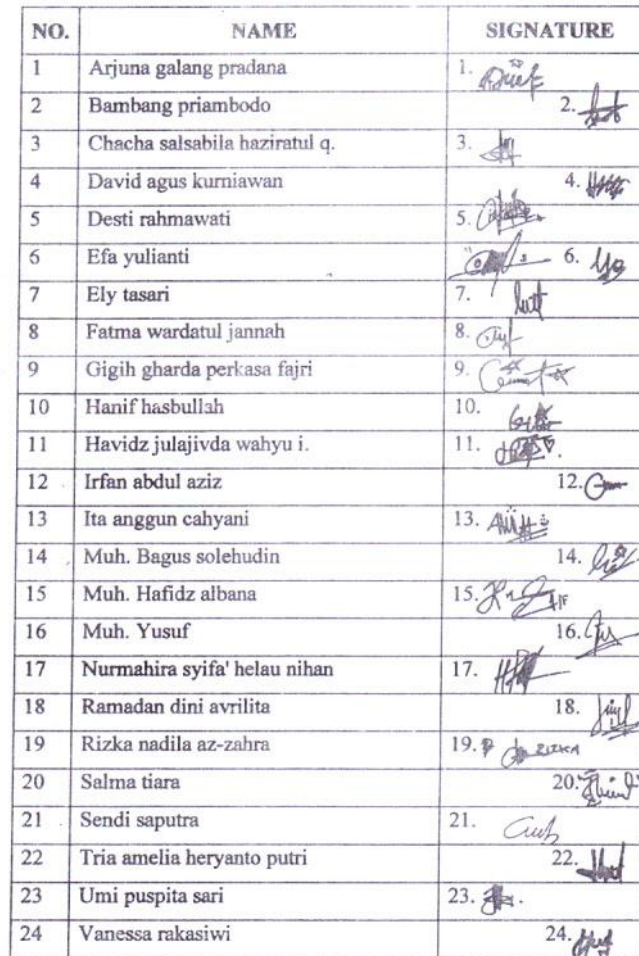 NO. NAME SIGNATURE
1 Arjuna galang pradana 1.
2 Bambang priambodo 2.
3 Chacha salsabila haziratul q. 3.
4 David agus kurniawan 4.
5 Desti rahmawati 5.
6 Efa yulianti 6.
7 Ely tasari 7.
8 Fatma wardatul jannah 8.
9 Gigih gharda perkasa fajri 9.
10 Hanif hasbullah 10.
11 Havidz julajivda wahyu i. 11.
12 Irfan abdul aziz 12.
13 Ita anggun cahyani 13.
14 Muh. Bagus solehudin 14.
15 Muh. Hafidz albana 15.
16 Muh. Yusuf 16.
17 Nurmahira syifa' helau nihan 17.
18 Ramadan dini avrilita 18.
19 Rizka nadila az-zahra 19. RIZKA
20 Salma tiara 20.
21 Sendi saputra 21.
22 Tria amelia heryanto putri 22.
23 Umi puspita sari 23.
24 Vanessa rakasiwi 24.